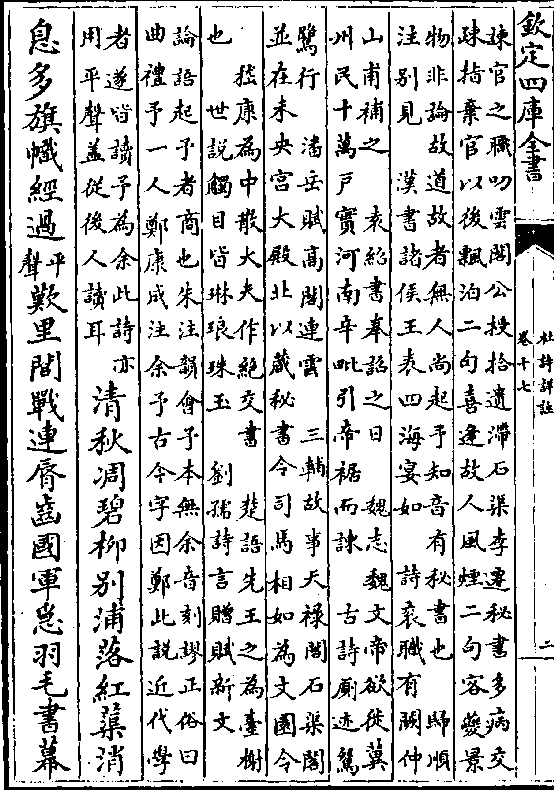 欽定四庫全書
杜詩詳註
卷十七
二
諫官之職叨雲閣公授拾遺滯石渠李遷秘書多病交
疎指棄官以後飄泊二句喜逢故人風煙二句客夔景
物非論故道故者無人尚起予知音有秘書也 歸順
注別見 漢書諸侯王表四海宴如 詩衮職有闕仲
山甫補之 袁紹書奉詔之日 魏志魏文帝欲徙冀
州民十萬戶實河南辛毗引帝裾而諫 古詩廁迹鴛
鷺行 潘岳賦高閣連雲 三輔故事天祿閣石渠閣
並在未央宮大殿北以藏秘書令司馬相如為文園令
嵇康為中散大夫作絶交書 楚語先王之為臺榭
也 世說觸目皆琳琅珠玉 劉孺詩言贈賦新文
論語起予者商也朱注韻會予本無余音刻謬正俗曰
曲禮予一人鄭康成注余予古今字因鄭此說近代學
者遂皆讀予為余此詩亦
用平聲蓋從後人讀耳
清秋凋碧柳別浦落紅蕖消
息多旗幟經過平聲歎里閭戰連脣齒國軍急羽毛書幕